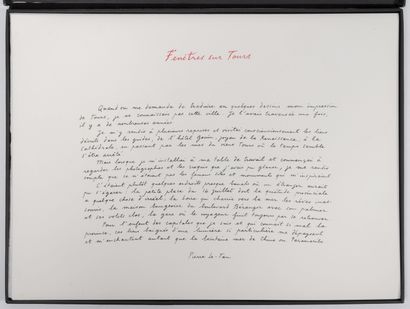 Fenêtres sur Tours
Quand on me demanda de traduire en quelques dessins mon impression
de Tours, je ne connaissais pas cette ville. Je l'avais traversée une fois,
il y a de nombreuses années.
Je m'y rendis à plusieurs reprises et visitai consciencieusement les lieux
décrits dans les guides, de l'hôtel Goüin, joyau de la Renaissance, à la
cathédrale, en passant par les rues du vieux Tours où le temps semble
s'être arrêté.
Mais lorsque je m'installai à ma table de travail et commençai à
regarder les photographies et les croquis que j'avais pu glaner, je me rendis
compte que ce n'étaient pas les fameux sites et monuments qui m'inspiraient.
C'étaient plutôt quelques endroits presque banals où un étranger aurait
pu s'égarer. La petite place du 14 juillet dont la tranquillité provinciale
a quelque chose d'irréel, la Loire qui charrie vers la mer les rêves
la maison bourgeoise du boulevard Béranger avec son palmier
et ses volets clos, la gare où le voyageur finit toujours par se retrouver.
Pour l'enfant des capitales que je suis et qui connaît si mal la
province, ces lieux baignés d'une lumière si particulière me dépaysent
et m'enchantent autant que les lointaines mers de Chine ou
Pierre Le-Tan